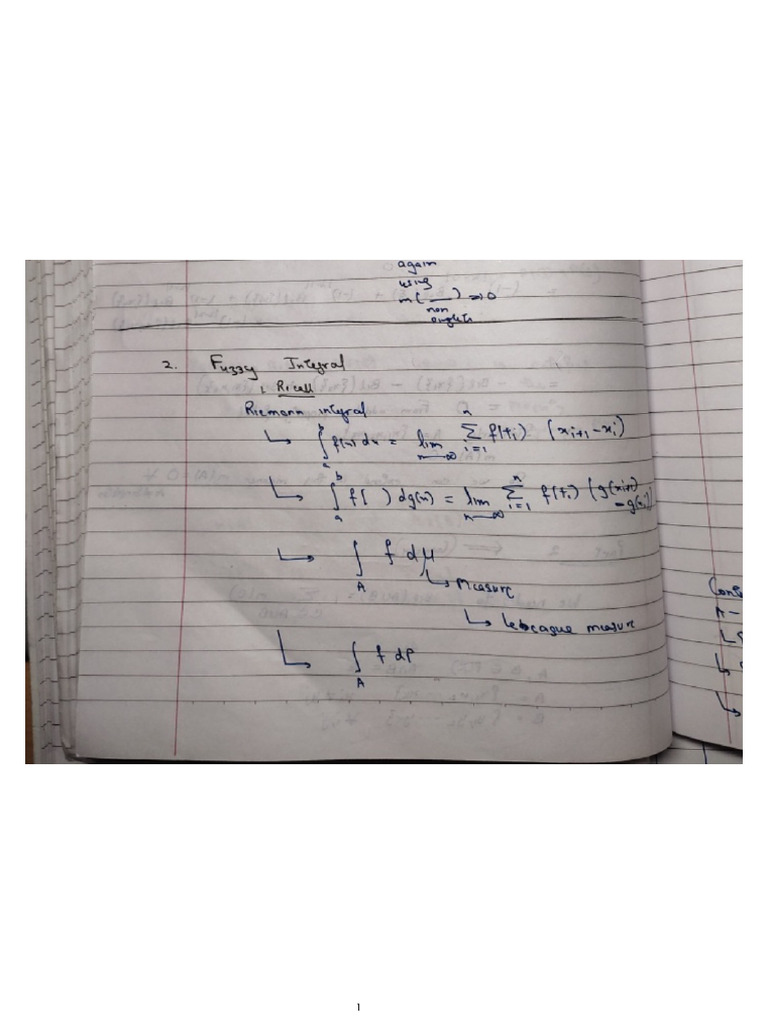 again
using
m(__) => 0
non
singlets
2. Fuzzy Integral
Recall
Riemann integral
↳ ∫_a^b f(x) dx = lim_{n→∞} ∑_{i=1}^n f(ti) (x_{i+1} - x_i)
↳ ∫_a^b f( ) dg(x) = lim_{n→∞} ∑_{i=1}^n f(ti) (g(x_{i+1}) - g(x_i))
↳ ∫_A f dμ
↳ Measure
↳ lebeague measure
↳ ∫_A f dP
A -
1